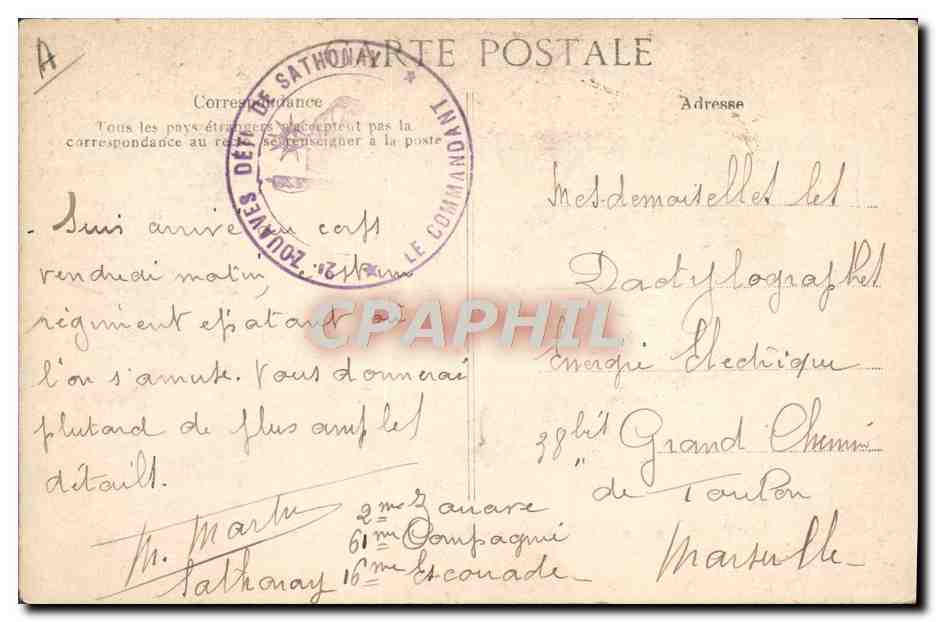 A
CARTE POSTALE
Correspondance
Tous les pays étrangers n'acceptent pas la
correspondance au recto se renseigner à la poste
Adresse
2e ZOUAVES DÉPÔT DE SATHONAY
LE COMMANDANT
Suis arrivé au corps
vendredi matin,
régiment epatant où
l'on s'amuse. Vous donnerai
plutard de plus amples
détails.
M. Martin
Sathonay
2me Zouave
61me Compagnie
16me Escouade
Mesdemoiselles les
Dactylographes
Energie Electrique
38bis Grand Chemin
de Toulon
Marseille
CPAPHIL